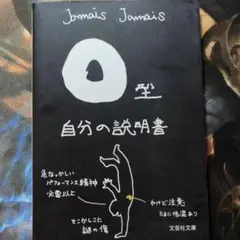 Jamais Jamais
O型
自分の説明書
危なっかしい
パフォーマンス精神
必要以上
やけど注意
たまに低温あり
そこかしこに
謎の傷
文芸社文庫